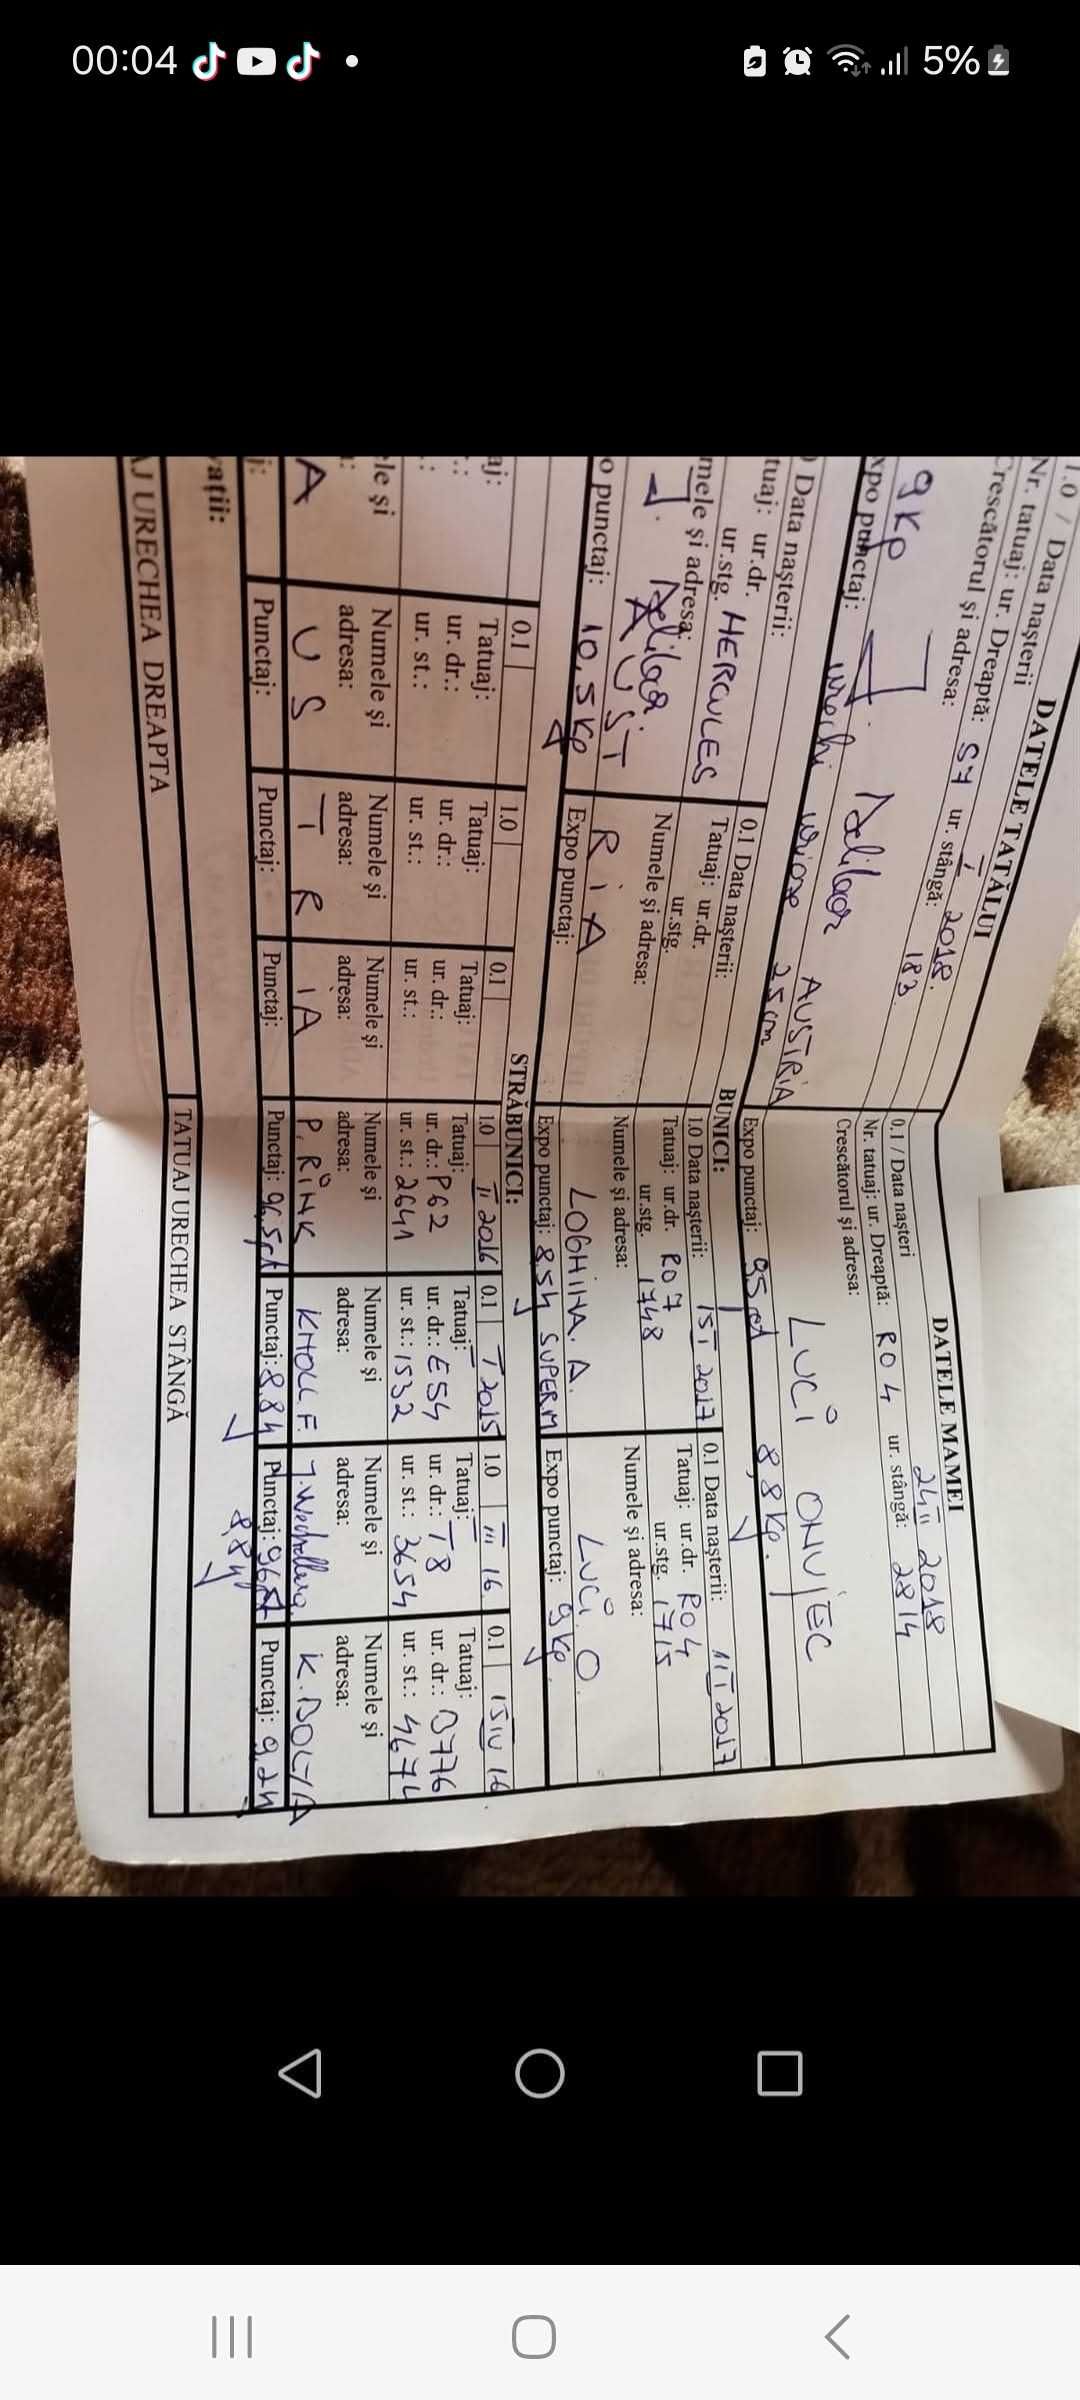 00:04
5%
DATELE TATĂLUI
1.0 / Data nașterii I 2018.
Nr. tatuaj: ur. Dreaptă: S7 ur. stângă: 183
Crescătorul și adresa:
AUSTRIA
urechi 25 cm
xpo punctaj:
9kp
DATELE MAMEI
0.1 / Data nașteri 24 II 2018
Nr. tatuaj: ur. Dreaptă: RO4 ur. stângă: 2814
Crescătorul și adresa:
LUCI
Expo punctaj: 95pct 8,8Kp.
BUNICI:
Data nașterii:
tuaj: ur.dr.
ur.stg. HERCULES
mele și adresa:
AUSTRIA
o punctaj: 10,5Kp
0.1 Data nașterii:
Tatuaj: ur.dr.
ur.stg.
Numele și adresa:
Expo punctaj:
1.0 Data nașterii: 15 I 2017
Tatuaj: ur.dr. RO7
ur.stg. 1748
Numele și adresa:
LOGHINA. A.
Expo punctaj: 8,5
0.1 Data nașterii: 11 I 2017
Tatuaj: ur.dr. RO4
ur.stg. 1715
Numele și adresa:
LUCI. O.
Expo punctaj: 9kp.
STRĂBUNICI:
aj:
le și
A
j:
0.1
Tatuaj:
ur. dr.:
ur. st.:
Numele și
adresa:
U S
Punctaj:
1.0
Tatuaj:
ur. dr.:
ur. st.:
Numele și
adresa:
T R
Punctaj:
0.1
Tatuaj:
ur. dr.:
ur. st.:
Numele și
adresa:
I A
Punctaj:
1.0 II 2016
Tatuaj:
ur. dr.: P62
ur. st.: 2641
Numele și
adresa:
P. RINK
Punctaj: 96,5pct
0.1 I 2015
Tatuaj:
ur. dr.: E54
ur. st.: 1532
Numele și
adresa:
KHOLL F.
Punctaj: 8,8
1.0 III 16
Tatuaj:
ur. dr.: T8
ur. st.: 3654
Numele și
adresa:
Punctaj:
8,8
0.1 15 IV 16
Tatuaj:
ur. dr.: B776
ur. st.: 4674
Numele și
adresa:
Punctaj: 9,2
vații:
AJ URECHEA DREAPTA
TATUAJ URECHEA STÂNGĂ